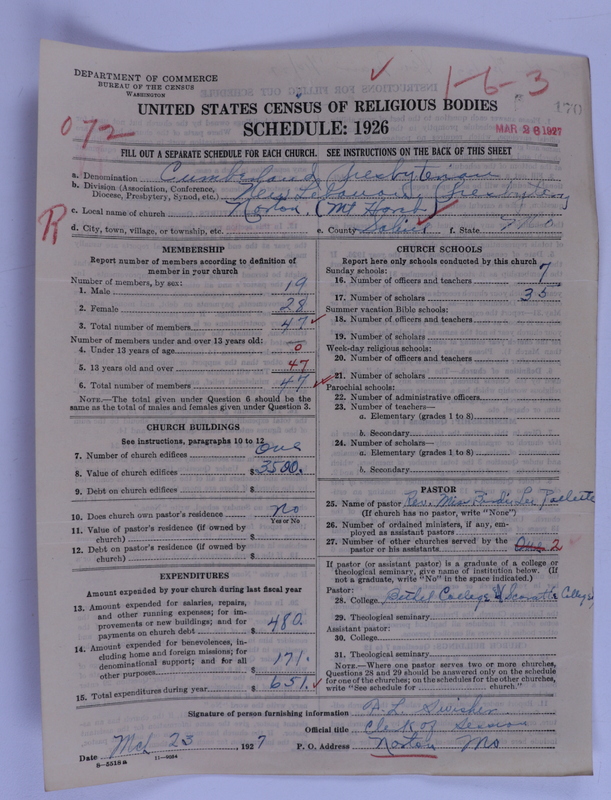 DEPARTMENT OF COMMERCE
BUREAU OF THE CENSUS
WASHINGTON
1-6-3
170
UNITED STATES CENSUS OF RELIGIOUS BODIES
SCHEDULE: 1926
MAR 26 1927
072
FILL OUT A SEPARATE SCHEDULE FOR EACH CHURCH. SEE INSTRUCTIONS ON THE BACK OF THIS SHEET
a. Denomination Cumberland Presbyterian
b. Division (Association, Conference, Diocese, Presbytery, Synod, etc.) New Lebanon Presbytery
c. Local name of church Norton (Mt Horeb)
R
d. City, town, village, or township, etc. e. County Saline f. State Mo
MEMBERSHIP
Report number of members according to definition of
member in your church
Number of members, by sex:
1. Male 19
2. Female 28
3. Total number of members 47
Number of members under and over 13 years old:
4. Under 13 years of age 0
5. 13 years old and over 47
6. Total number of members 47
NOTE.—The total given under Question 6 should be
same as the total of males and females given under Question 3.
CHURCH BUILDINGS
See instructions, paragraphs 10 to 12
7. Number of church edifices One
8. Value of church edifices $3500.
9. Debt on church edifices $
10. Does church own pastor's residence No
Yes or No
11. Value of pastor's residence (if owned by
church) $
12. Debt on pastor's residence (if owned by
church) $
EXPENDITURES
Amount expended by your church during last fiscal year
13. Amount expended for salaries, repairs,
and other running expenses; for im-
provements or new buildings; and for
payments on church debt $ 480.
14. Amount expended for benevolences, in-
cluding home and foreign missions; for
denominational support; and for all
other purposes $ 171.
15. Total expenditures during year $ 651.
CHURCH SCHOOLS
Report here only schools conducted by this church
Sunday schools:
16. Number of officers and teachers 7
17. Number of scholars 35
Summer vacation Bible schools:
18. Number of officers and teachers
19. Number of scholars
Week-day religious schools:
20. Number of officers and teachers
21. Number of scholars
Parochial schools:
22. Number of administrative officers
23. Number of teachers—
a. Elementary (grades 1 to 8)
b. Secondary
24. Number of scholars—
a. Elementary (grades 1 to 8)
b. Secondary
PASTOR
25. Name of pastor Rev. Miss Lee
(If church has no pastor, write "None")
26. Number of ordained ministers, if any, em-
ployed as assistant pastors
27. Number of other churches served by the
pastor or his assistants One 2
If pastor (or assistant pastor) is a graduate of a college or
theological seminary, give name of institution below. (If
not a graduate, write "No" in the space indicated.)
Pastor:
28. College Bethel College & Scarritt College
29. Theological seminary
Assistant pastor:
30. College
31. Theological seminary
NOTE.—Where one pastor serves two or more churches,
Questions 28 and 29 should be answered only on the schedule
for one of the churches; on the schedules for the other churches,
write "See schedule for church."
Signature of person furnishing information A. L. Swisher
Official title Clerk of Session
Date Mch 23, 1927 P. O. Address Norton Mo
8-5518a 11-9084